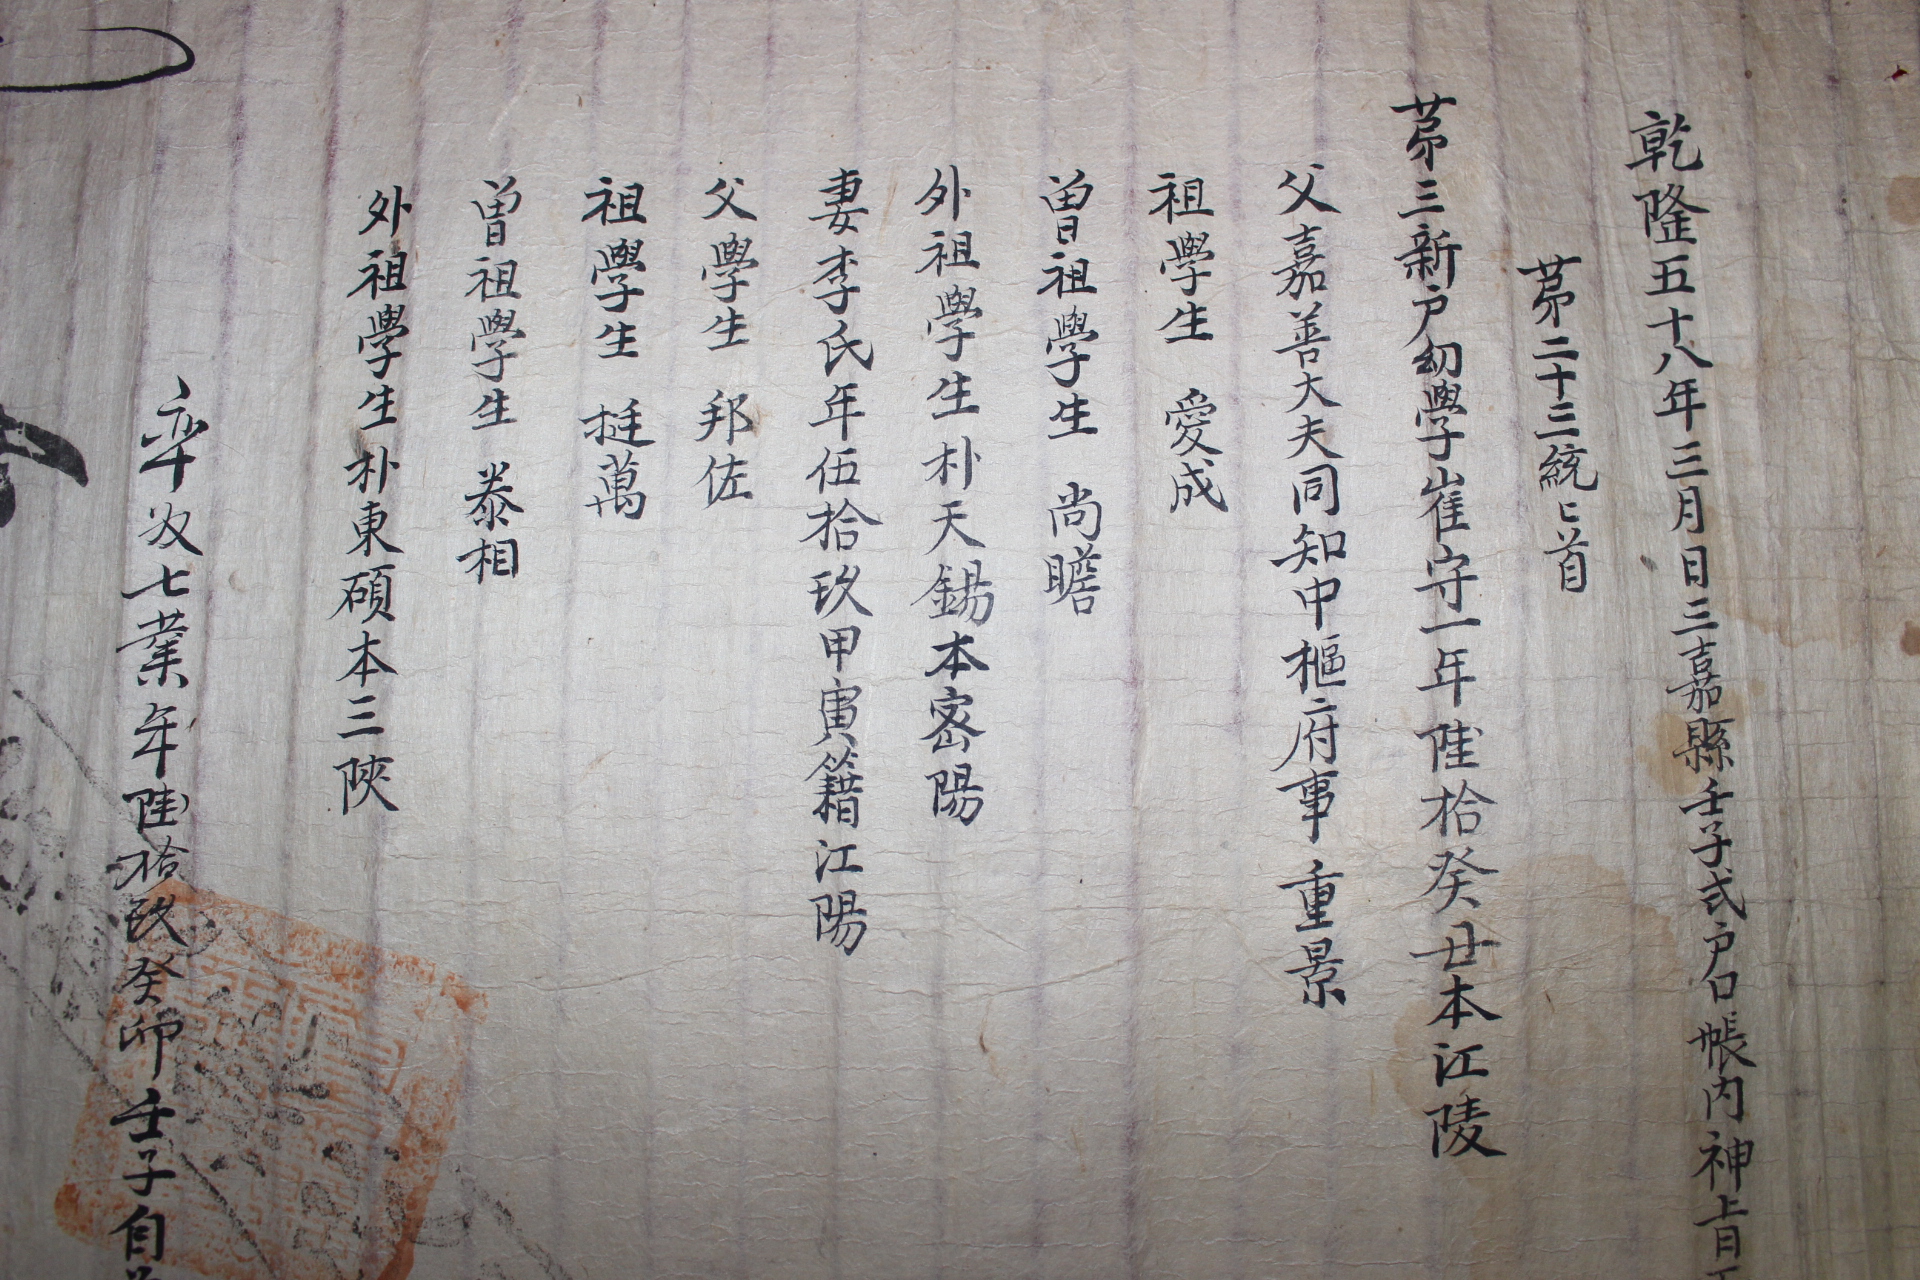 乾隆五十八年三月日三嘉縣壬子式戶口帳內神旨
第二十三統
第三新戶幼學崔守一年陸拾癸丑本江陵
父嘉善大夫同知中樞府事重景
祖學生 愛成
曾祖學生 尚瞻
外祖學生朴天錫本密陽
妻李氏年伍拾玖甲寅籍江陽
父學生 邦佐
祖學生 挺萬
曾祖學生 泰相
外祖學生朴東碩本三陜
率奴七業年陸拾玖癸卯壬子自